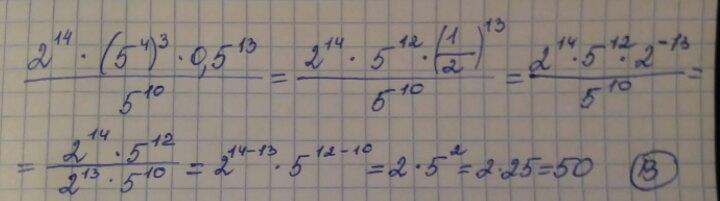 \frac{2^{14} \cdot (5^4)^3 \cdot 0,5^{13}}{5^{10}} = \frac{2^{14} \cdot 5^{12} \cdot \left(\frac{1}{2}\right)^{13}}{5^{10}} = \frac{2^{14} \cdot 5^{12} \cdot 2^{-13}}{5^{10}} =
= \frac{2^{14} \cdot 5^{12}}{2^{13} \cdot 5^{10}} = 2^{14-13} \cdot 5^{12-10} = 2 \cdot 5^2 = 2 \cdot 25 = 50 В